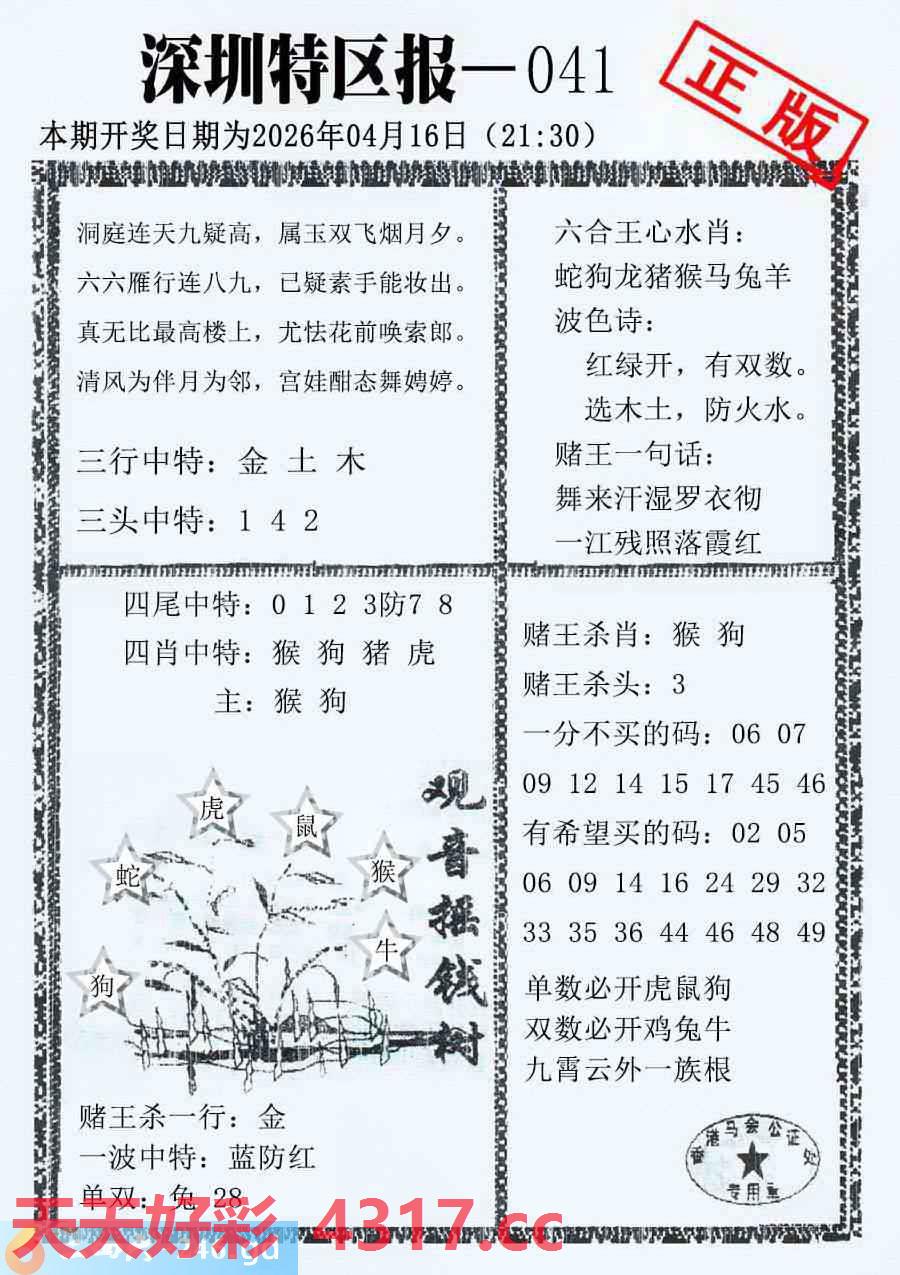 深圳特区报—041
正版
本期开奖日期为2026年04月16日（21:30）
洞庭连天九疑高，属玉双飞烟月夕。
六六雁行连八九，已疑素手能妆出。
真无比最高楼上，尤怯花前唤索郎。
清风为伴月为邻，宫娃酣态舞娉婷。
三行中特：金 土 木
三头中特：1 4 2
六合王心水肖：
蛇狗龙猪猴马兔羊
波色诗：
红绿开，有双数。
选木土，防火水。
赌王一句话：
舞来汗湿罗衣彻
一江残照落霞红
四尾中特：0 1 2 3防7 8
四肖中特：猴 狗 猪 虎
主：猴 狗
观音摇钱树
虎
鼠
蛇
猴
牛
狗
赌王杀一行：金
一波中特：蓝防红
单双：兔 28
赌王杀肖：猴 狗
赌王杀头：3
一分不买的码：06 07
09 12 14 15 17 45 46
有希望买的码：02 05
06 09 14 16 24 29 32
33 35 36 44 46 48 49
单数必开虎鼠狗
双数必开鸡兔牛
九霄云外一族根
香港马会公证处
专用章
天天好彩 4317.cc